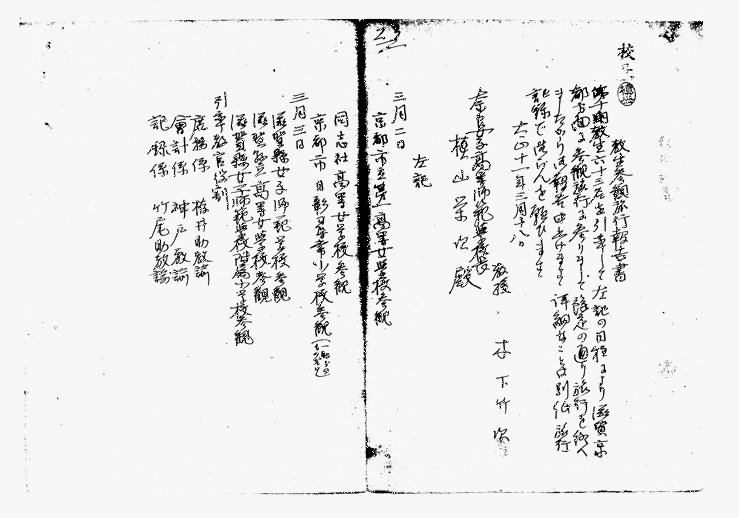 23
校
教生参観旅行報告書
第十期教生六十三名を引率して左記の日程により滋賀京
都方面に参観旅行に参りまして 豫定の通り旅行を終へ
ましたから此段報告申上げます 詳細なことは別紙旅行
記録で御覧を願ひます
大正十一年三月十八日
教授 木下竹次
奈良女子高等師範学校長
槇山栄次殿
左記
三月二日
京都市立第一高等女学校参観
同志社高等女学校参観
京都市日彰尋常小学校参観
三月三日
滋賀縣女子師範学校参観
滋賀縣立高等女学校参観
滋賀縣女子師範学校附属小学校参観
引率教官役割
庶務係 桜井助教諭
會計係 神戸教諭
記録係 竹尾助教諭